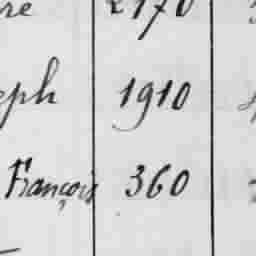 re 2170
eph 1910
François 360